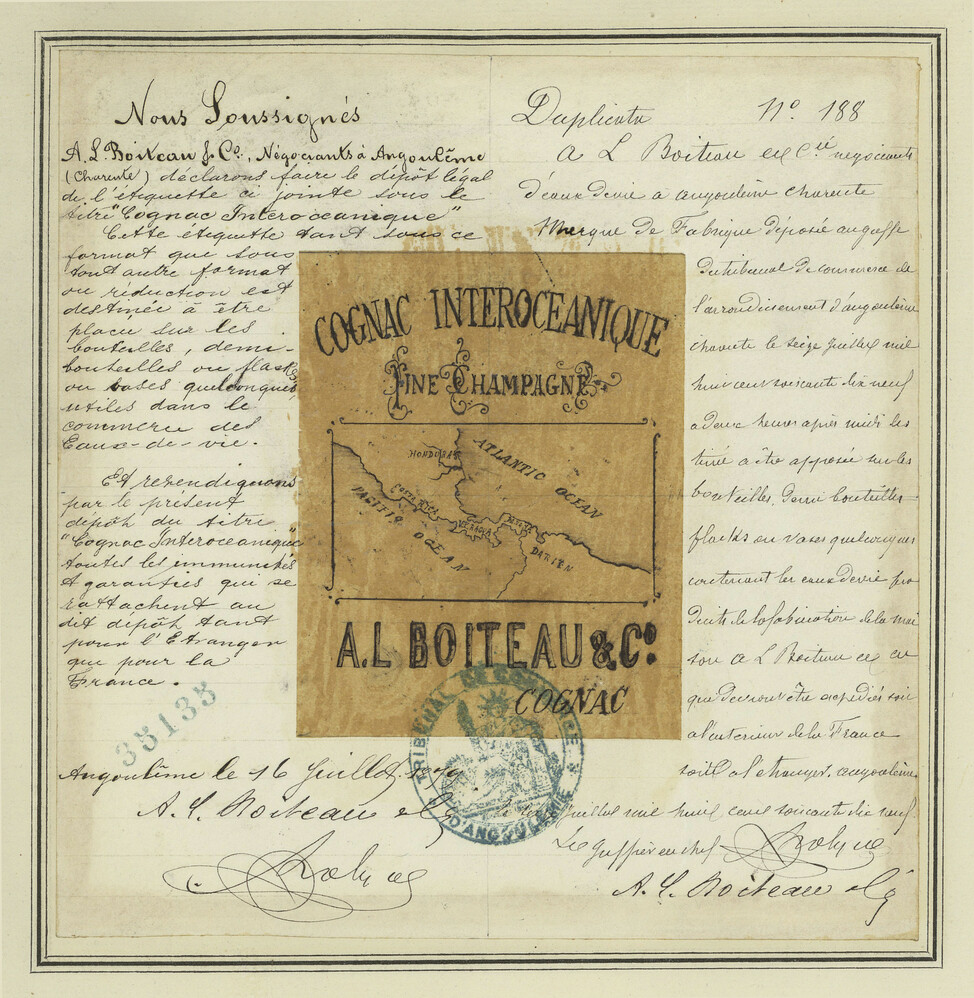 Nous Soussignés
A. L. Boiteau & Co., Négociants à Angoulême
(Charente) déclarons faire le dépôt légal
de l'étiquette ci jointe sous le
titre "Cognac Interoceanique"
Cette étiquette tant sous ce
format que sous
tout autre format
ou réduction est
destinée à être
place sur les
bouteilles, demi-
bouteilles ou flasks
ou vases quelconques
utiles dans le
commerce des
Eaux-de-vie.
Et revendiquons
par le présent
dépôt du titre
"Cognac Interoceanique"
toutes les immunités
et garanties qui se
rattachent au
dit dépôt tant
pour l'Etranger
que pour la
France.
35135
Angoulême le 16 Juillet 1879
A. L. Boiteau & Cy
COGNAC INTEROCEANIQUE
FINE CHAMPAGNE
HONDURAS
ATLANTIC OCEAN
COSTA RICA
VERAGUA
BOGOTA
DARIEN
PACIFIC OCEAN
A.L BOITEAU & Co.
COGNAC
TRIBUNAL DE COMMERCE
D'ANGOULEME
Duplicata No. 188
A L Boiteau et Cie négociants
d'eaux de vie a angoulême charente
Marque de Fabrique déposée au greffe
du tribunal de commerce de
l'arrondissement d'angoulême
charente le seize Juillet mil
huit cent soixante dix neuf
a deux heures après midi les
tiné a être apposée sur les
bouteilles, demi bouteilles
flasks ou vases quelconques
contenant les eaux de vie pro
duits de la fabrication de la mai
son A L Boiteau et Cie
que devront être expediés soit
a l'interieur de la France
soit a l'etranger. angoulême
Juillet mil huit cent soixante dix neuf
Le Greffier en chef
A. L. Boiteau & Cy